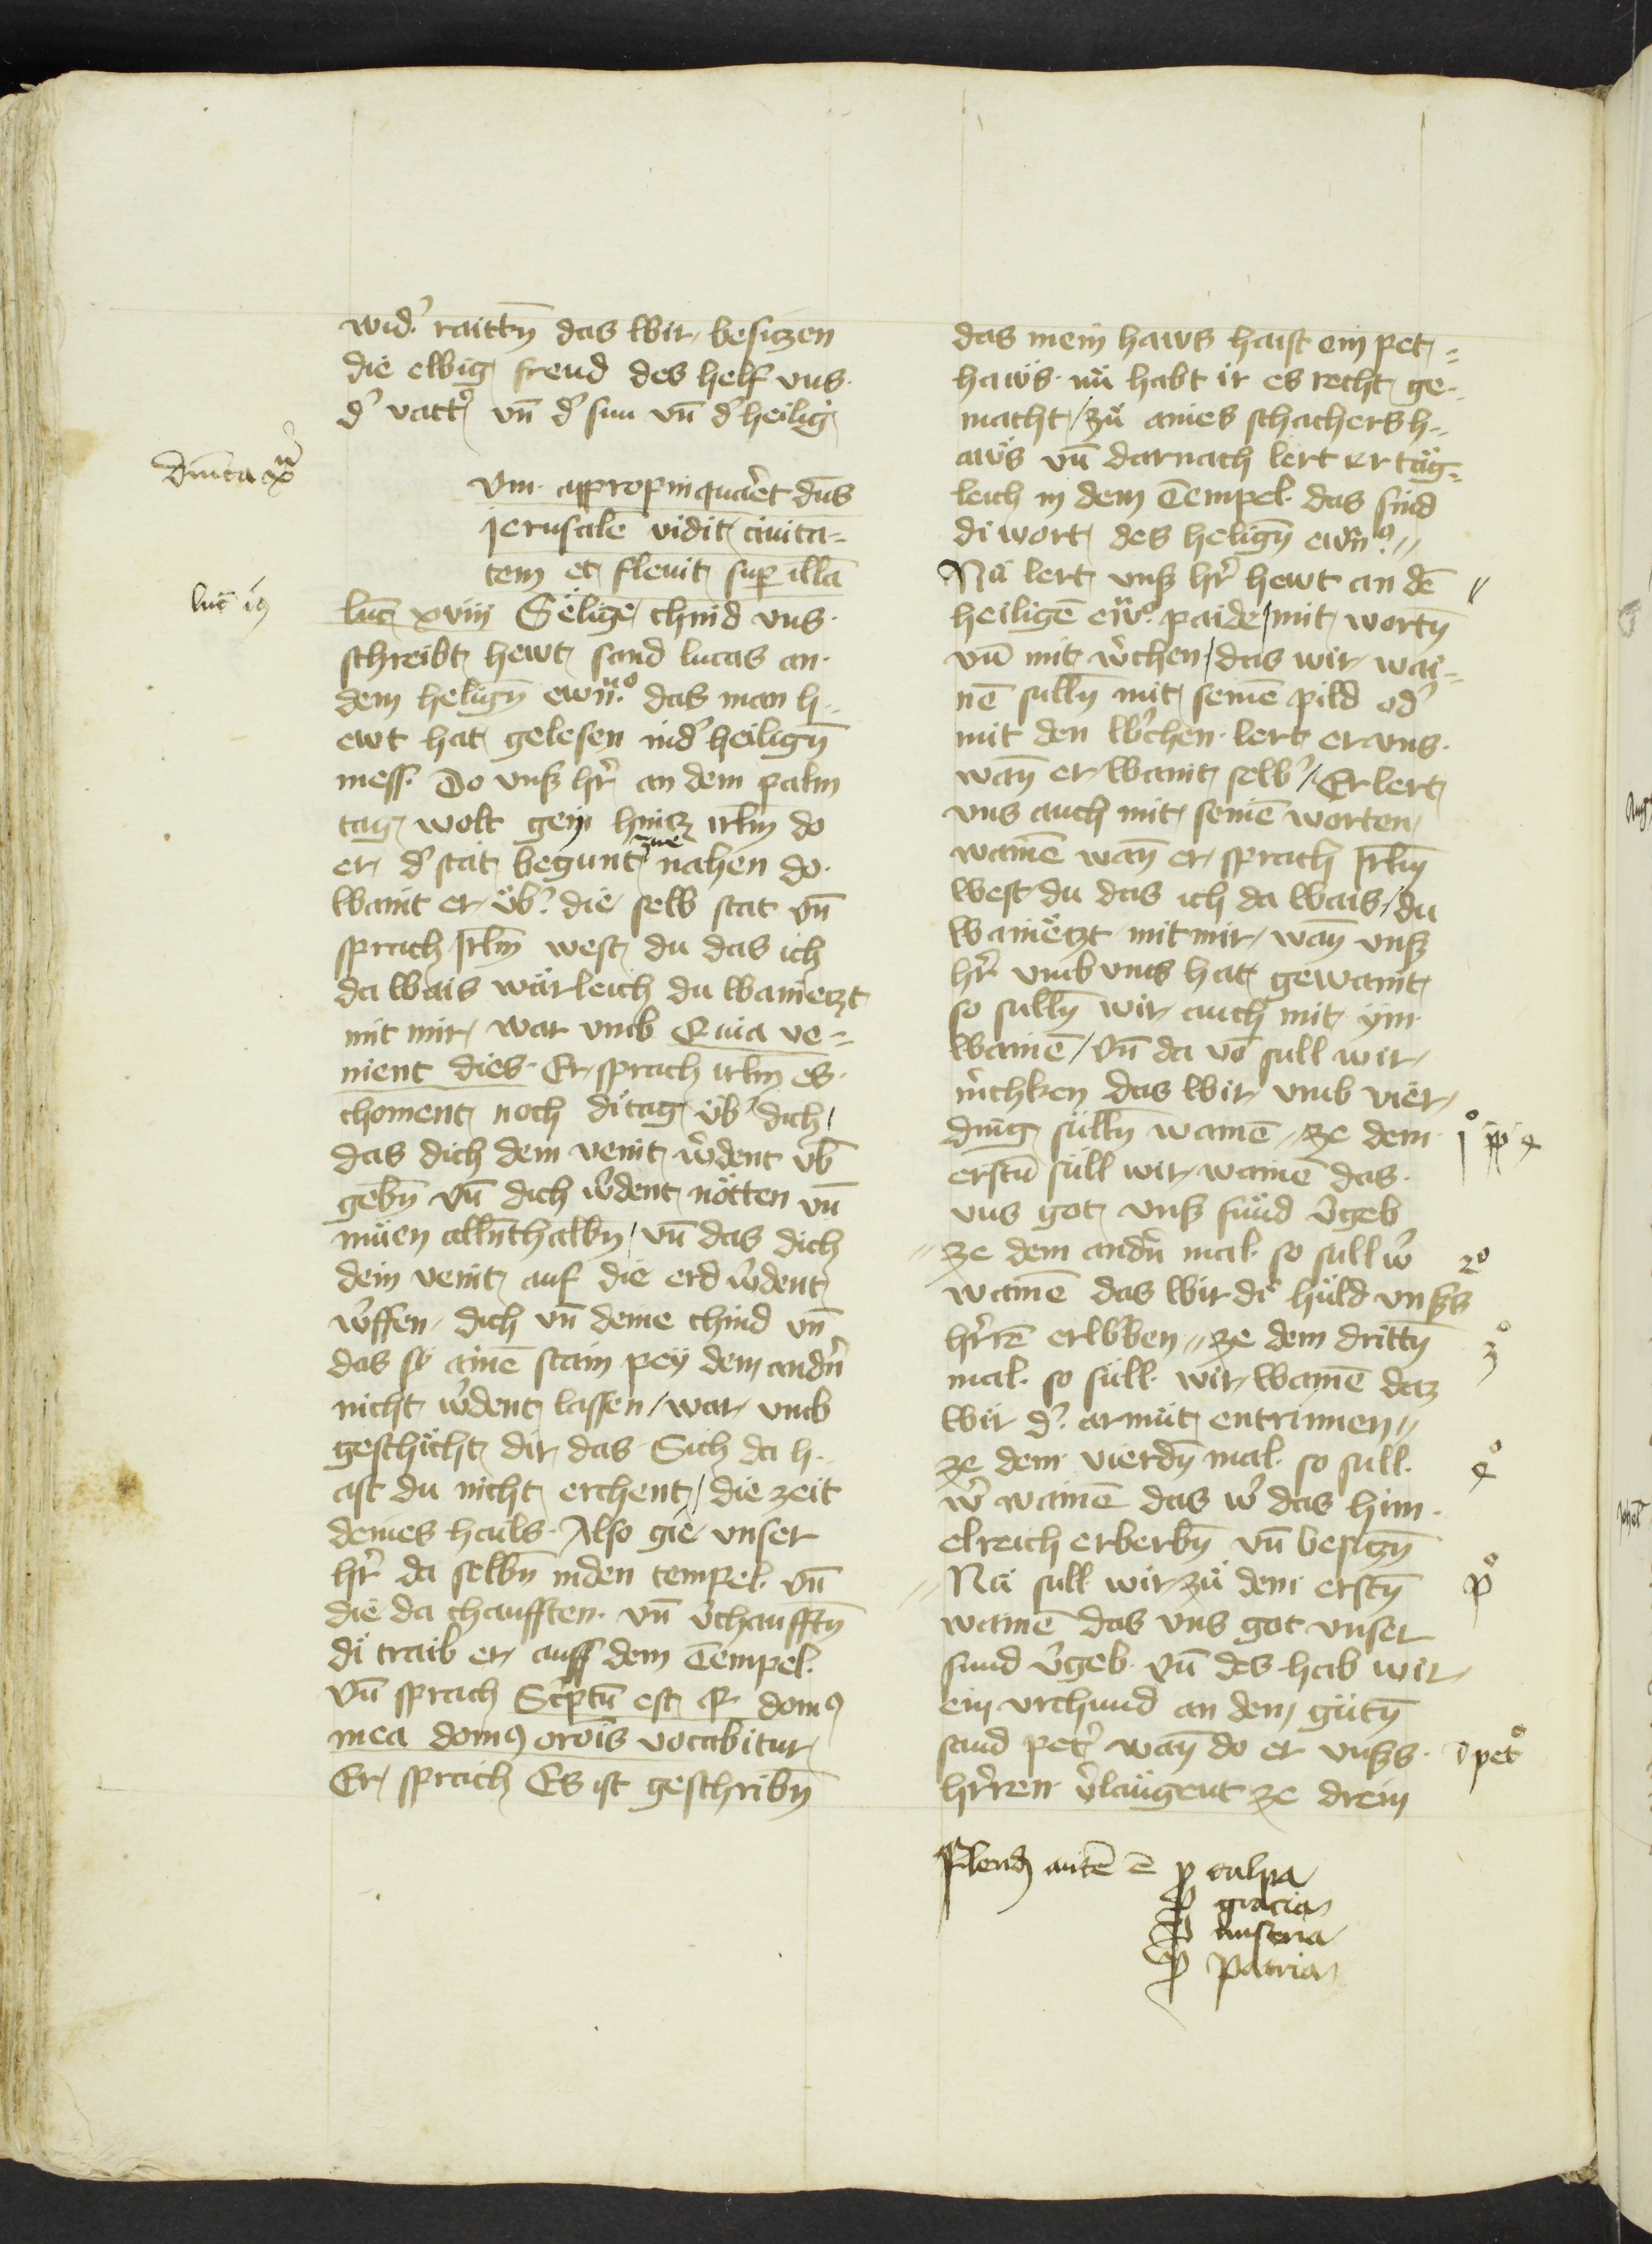 wid' raittn̄ das wir besiczen
die ewig frend des helf vns
d' vatt' vn̄ d' sun vn̄ d' heilig
Vm appropinquar̄et dn̄s
jerusalē vidit ciuita=
tem et fleuit sup illā
luc̄ xviij Sëlige chind vns
schreibt hewt sand lucas an
dem helign̄ ewn̄o das man h=
ewt hat gelesen in d' heilign̄
mess. Do vnß hr̄ an dem palm
tag wolt gein hincz irlm̄ do
er d' stat begunt zue nahen do
waint er vb' die selb stat vn̄
sprach Irlm̄ west du das ich
da wais wärleich du wainetzt
mit mir war vmb Quia ve=
nient dies Er sprach irlm̄ es
choment noch di tag vb' dich
das dich dein veint w'dent vb̄
gebn̄ vn̄ dich w'dent nötten vn̄
müen alln̄thalbn̄ / vn̄ das dich
dein veint auf die erd w'dent
w'ffen dich vn̄ deine chind vn̄
das sy ainē stain pey dem andn̄
nicht w'dent lassen / war vmb
geschicht dir das Sich da h=
ast du nicht erchent / die zeit
deines hails Also gie vnser
hr̄ da selbn̄ in den tempel vn̄
die da chaufften vn̄ v'chaufftn̄
di traib er auss dem Tempel
vn̄ sprach Sc'ptū est q domꝰ
mea domꝰ orōis vocabitur
Er sprach Es ist geschribn̄
luc̄ 19
das mein haws haist ein pet=
haws nü habt ir es recht ge=
macht / zü aines schachers h=
aws vn̄ darnach lert er täg=
leich in dem Tempel das sind
di wort des helign̄ ewn̄o
Nü lert vnß hr̄ hewt an dē
heiligē ew̄o paide / mit wortn̄
vn̄ mit w'chen / das wir wai=
nē sulln̄ mit seinē pild od'
mit den w'chen lert er vns
wan̄ er waint selb' / Er lert
vns auch mit seinē worten
wainē wan̄ er sprach Irlm̄
west du das ich da wais / du
wainëtzt mit mir wan̄ vnß
hr̄ vmb vns hat gewaint
so sulln̄ wir auch mit ym
wainē / vn̄ da vō sull wir
m'chken das wir vmb vier
ding sülln̄ wainē // ze dem
erstn̄ süll wir wainē das
vns got vnß sünd v'geb
// ze dem andn̄ mal so sull w'
wainē das wir di huld vnßs
hr̄rē erw'ben // ze dem drittn̄
mal so süll wir wainē daz
wir d' armüt entrinnen //
ze dem vierdn̄ mal so sull
w' wainē das w' das him=
elreich erberbn̄ vn̄ besiczn̄
// Nü sull wir zü dem erstn̄
wainē das vns got vnser
sund v'geb vn̄ des hab wir
ein vrchund an dem gütn̄
sand pet' wan̄ do er vnßs
hr̄ren v'laügent ze drein
2o
3o
4o
po
pet'
Flendꝰ autē ē p culpa
p gracia
p miseria
p patria